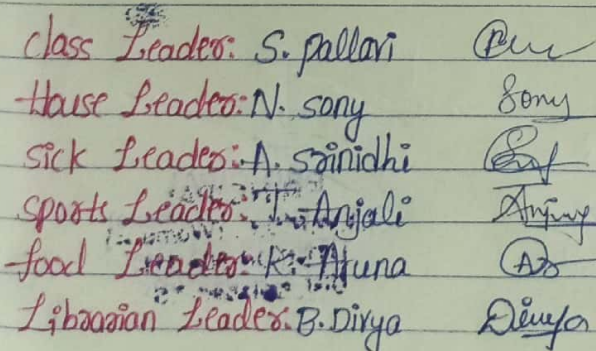 class Leader: S. pallavi
House Leader: N. sony Sony
sick Leader: A. srinidhi
sports Leader: Anjali
food Leader: K. Aruna
Librarian Leader: B. Divya Divya